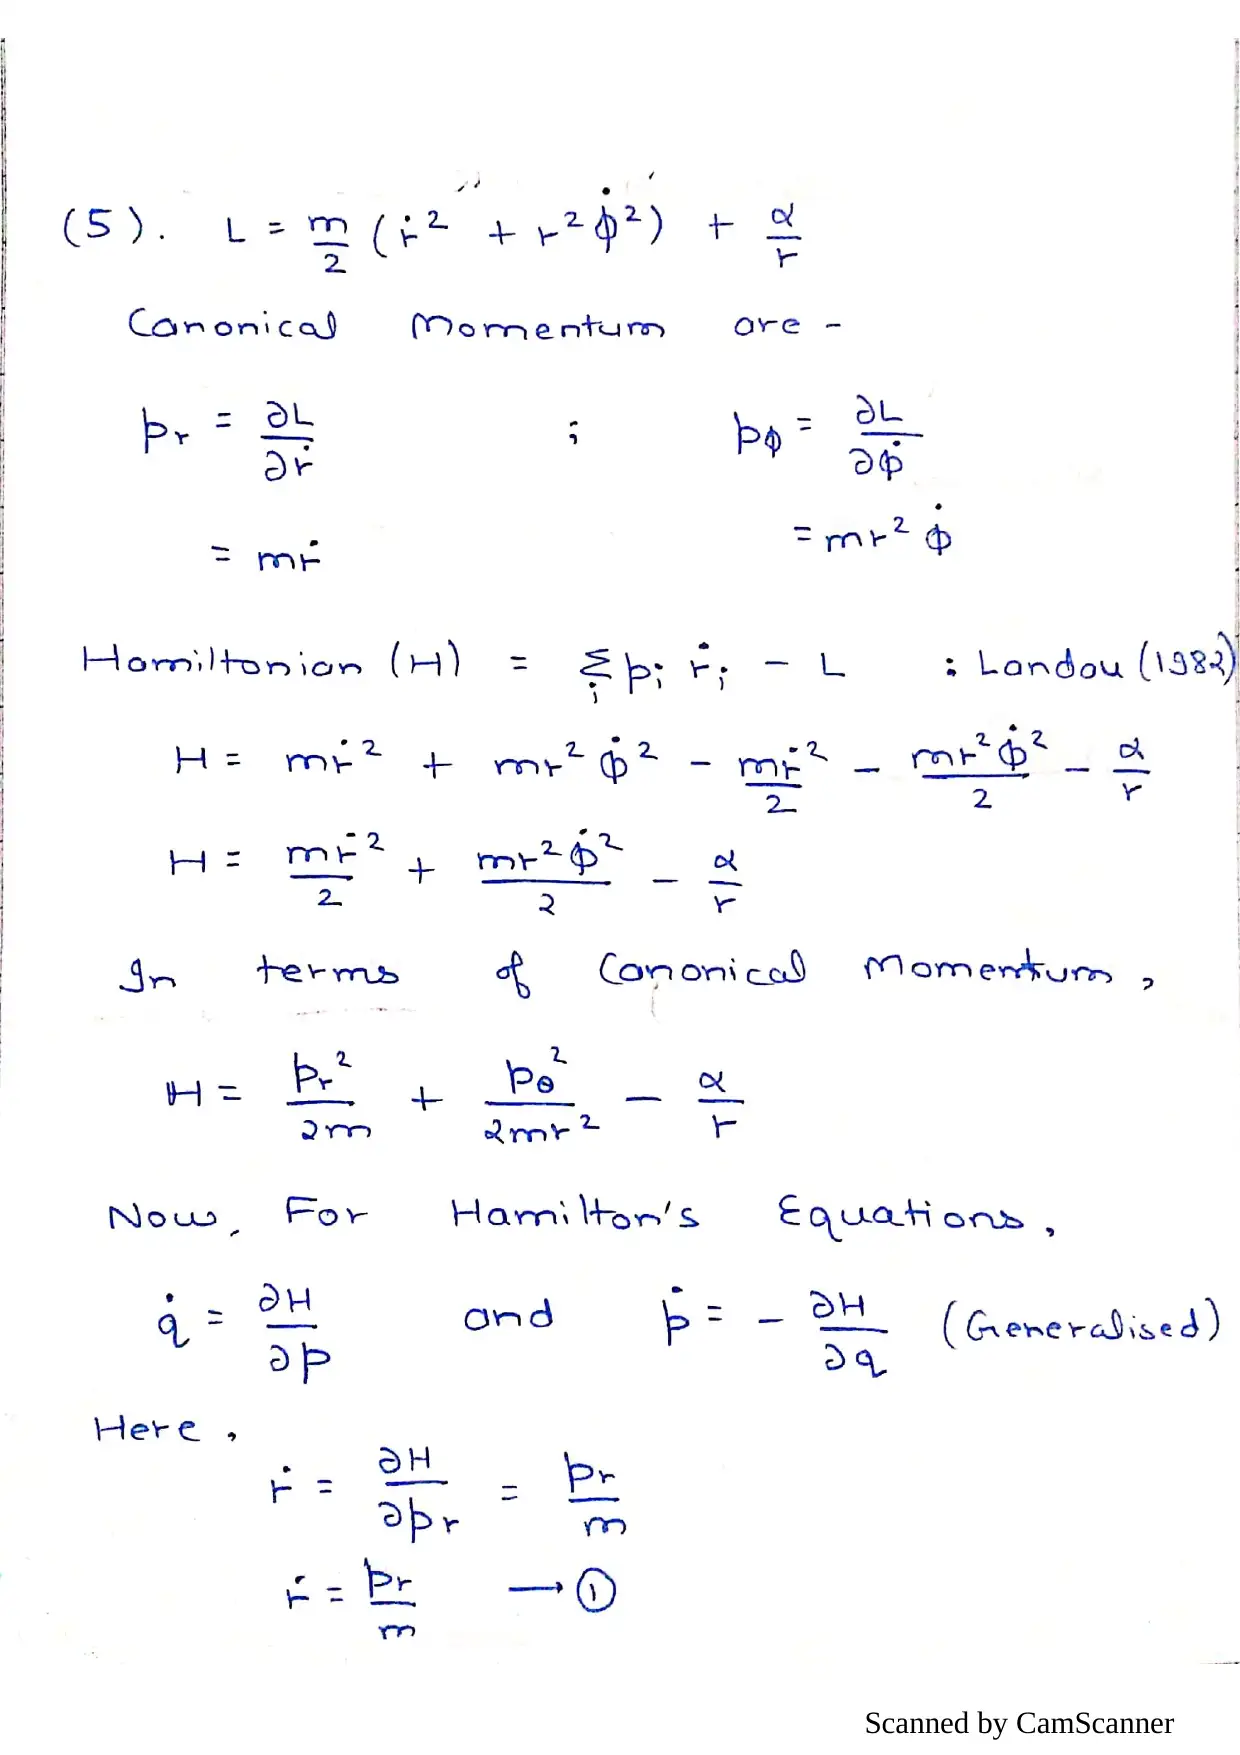 (5). L = m/2 (ṙ² + r²φ̇²) + α/r
Canonical Momentum are -
p_r = ∂L/∂ṙ ; p_φ = ∂L/∂φ̇
= mṙ = mr² φ̇
Hamiltonian (H) = Σ_i p_i ṙ_i - L ; Landau (1982)
H = mṙ² + mr² φ̇² - mṙ²/2 - mr²φ̇²/2 - α/r
H = mṙ²/2 + mr²φ̇²/2 - α/r
In terms of Canonical Momentum,
H = p_r²/2m + p_θ²/2mr² - α/r
Now, For Hamilton's Equations,
q̇ = ∂H/∂p and ṗ = - ∂H/∂q (Generalised)
Here,
ṙ = ∂H/∂p_r = p_r/m
ṙ = p_r/m → ①
Scanned by CamScanner